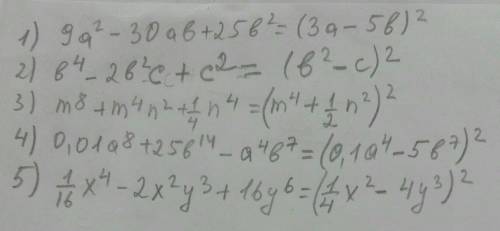 1) 9a² - 30ав + 25в² = (3a - 5в)²
2) в⁴ - 2в²c + c² = (в² - c)²
3) m⁸ + m⁴n² + 1/4 n⁴ = (m⁴ + 1/2 n²)²
4) 0,01a⁸ + 25в¹⁴ - a⁴в⁷ = (0,1a⁴ - 5в⁷)²
5) 1/16 x⁴ - 2x²y³ + 16y⁶ = (1/4 x² - 4y³)²